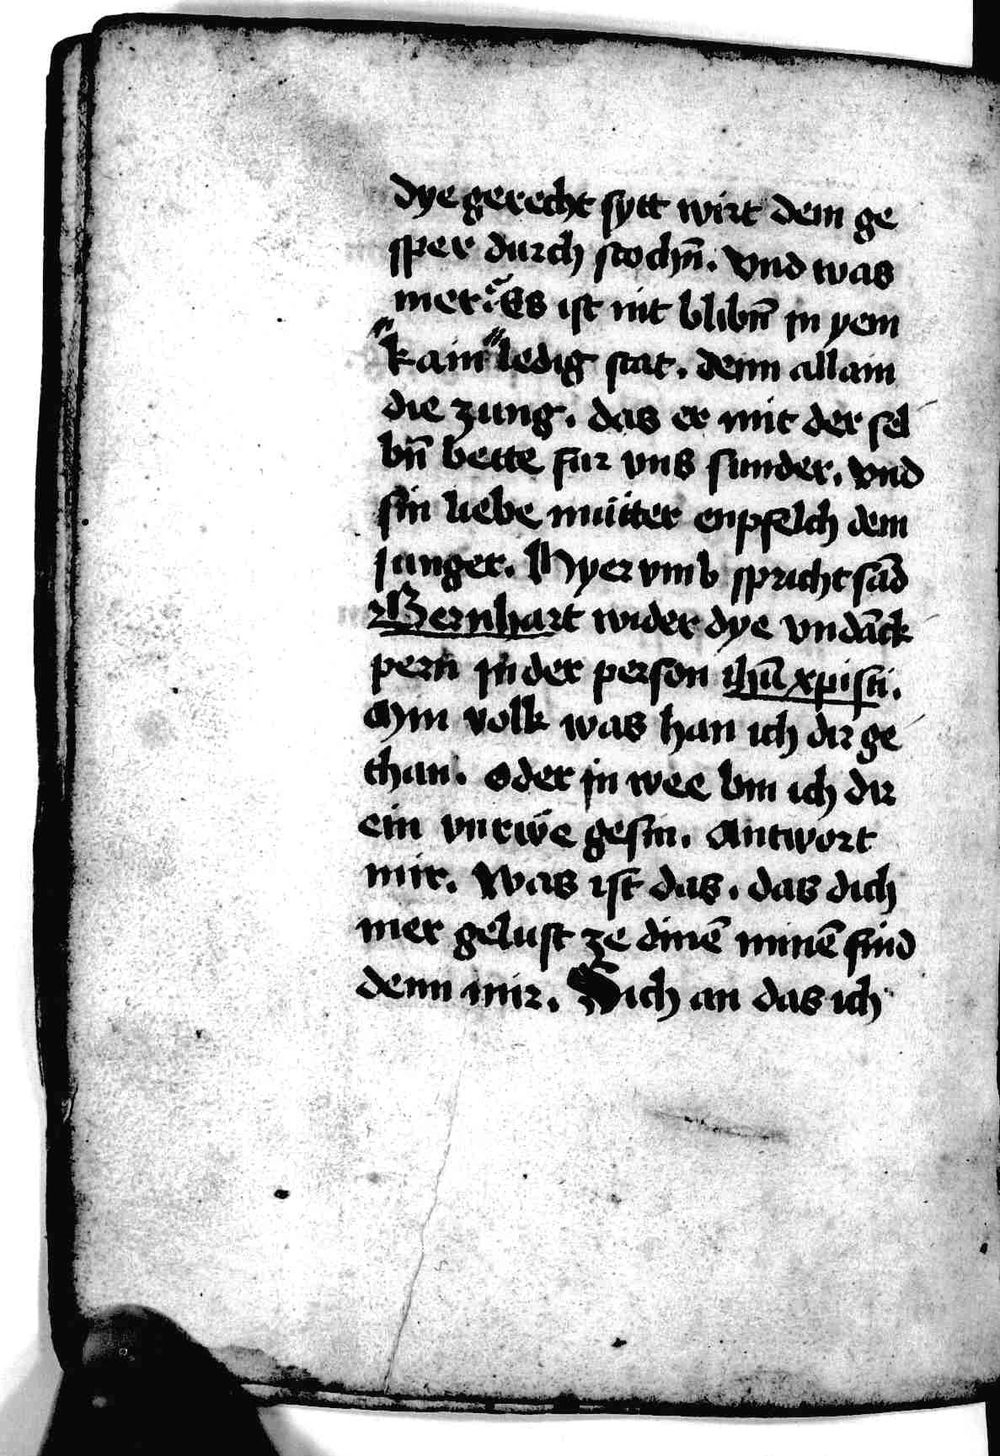 dye gerecht sytt wirt dem ge
sper durch stochn̄. Vnd was
mer. Es ist nit blibn̄ jn yem
kain ledig stat. denn allain
die zung. das er mit der sel
bn̄ bette fur vns sunder. vnd
sin liebe muͤter enpfelch dem
Junger. Hyer vmb spricht sād
Bernhart wider dye vndāck
pern jn der person ihū xpisti.
Min volk was han ich dir ge
than. oder jn wee bin ich dir
ein vnrwe gesin. Antwort
mir. Was ist das. das dich
mer gelust ze dinē minē find
denn mir. Sich an das ich